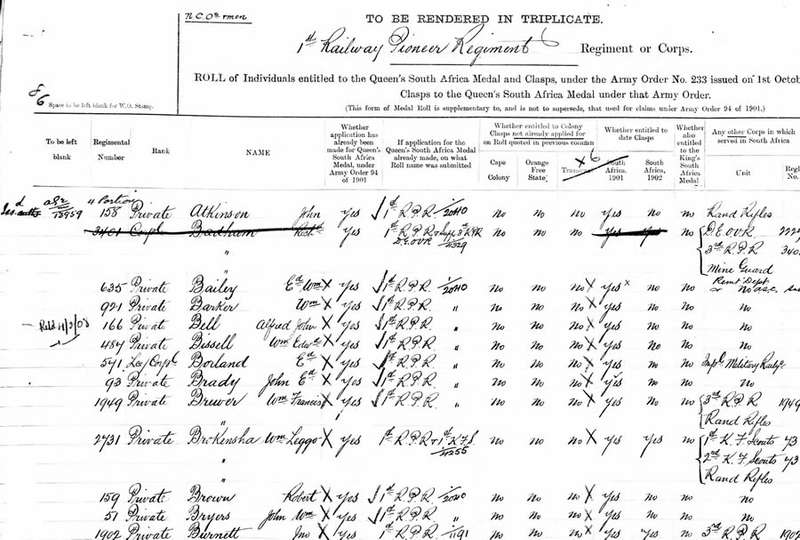 N.C.Os & men
TO BE RENDERED IN TRIPLICATE.
1st Railway Pioneer Regiment Regiment or Corps.
8/6
Space to be left blank for W.O. Stamp.
ROLL of Individuals entitled to the Queen's South Africa Medal and Clasps, under the Army Order No. 233 issued on 1st Octob
Clasps to the Queen's South Africa Medal under that Army Order.
(This form of Medal Roll is supplementary to, and is not to supersede, that used for claims under Army Order 94 of 1901.)
To be left blank
Regimental Number
Rank
NAME
Whether application has already been made for Queen's South Africa Medal, under Army Order 94 of 1901
If application for the Queen's South Africa Medal already made, on what Roll name was submitted
Whether entitled to Colony Clasps not already applied for on Roll quoted in previous column
Cape Colony
Orange Free State
Transvaal
x6
Whether entitled to date Clasps
South Africa, 1901
South Africa, 1902
Whether also entitled to the King's South Africa Medal
Any other Corps in which served in South Africa
Unit
Reg
No
"Portion
158 Private Atkinson John Yes 1st R.P.R. 1/20HO no no no yes no no Rand Rifles
3401 Corpl Badham Yes 1st R.P.R. no no no yes yes no D.E.O.V.R. 222
D.E.O.V.R.
3rd R.P.R. 340
" Mine Guard
635 Private Bailey Ed Wm X Yes 1st R.P.R. 1/20HO no no no X yes x no no Remt Dept or No A.S.C.
921 Private Barker Wm X Yes 1st R.P.R. " no no no X yes no no no
Retd 11/3/08 166 Private Bell Alfred John X Yes 1st R.P.R. " no no no X yes no no no
487 Private Bissell Wm Edwd X Yes 1st R.P.R. " no no no X yes no no no
571 Lce Corpl Borland Ed X Yes 1st R.P.R. " no no no X yes no no Impl Military Railys
93 Private Brady John Ed X Yes 1st R.P.R. " no no no X yes no no no
1949 Private Brewer Wm Francis X Yes 1st R.P.R. " no no no X yes no no 3rd R.P.R. 1949
" Rand Rifles
2731 Private Brokensha Wm Leggo X Yes 1st R.P.R. & 1st K.F.S. no no no X yes yes no 1st K.F. Scouts 73
" 2nd K.F. Scouts 73
" Rand Rifles
159 Private Brown Robert X Yes 1st R.P.R. 1/20HO no no no X yes no no no
51 Private Bryers John Wm X Yes 1st R.P.R. " no no no X yes no no no
1902 Private Burnett Jno X Yes 1st R.P.R. 1/191 no no no X yes yes no 3rd R.P.R. 1902